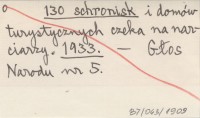 130 schronisk i domów
turystycznych czeka na nar-
ciarzy. 1933. — Głos
Narodu nr 5.
B7/063/1909